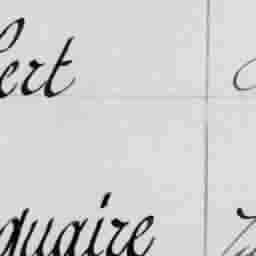 ert
quaire